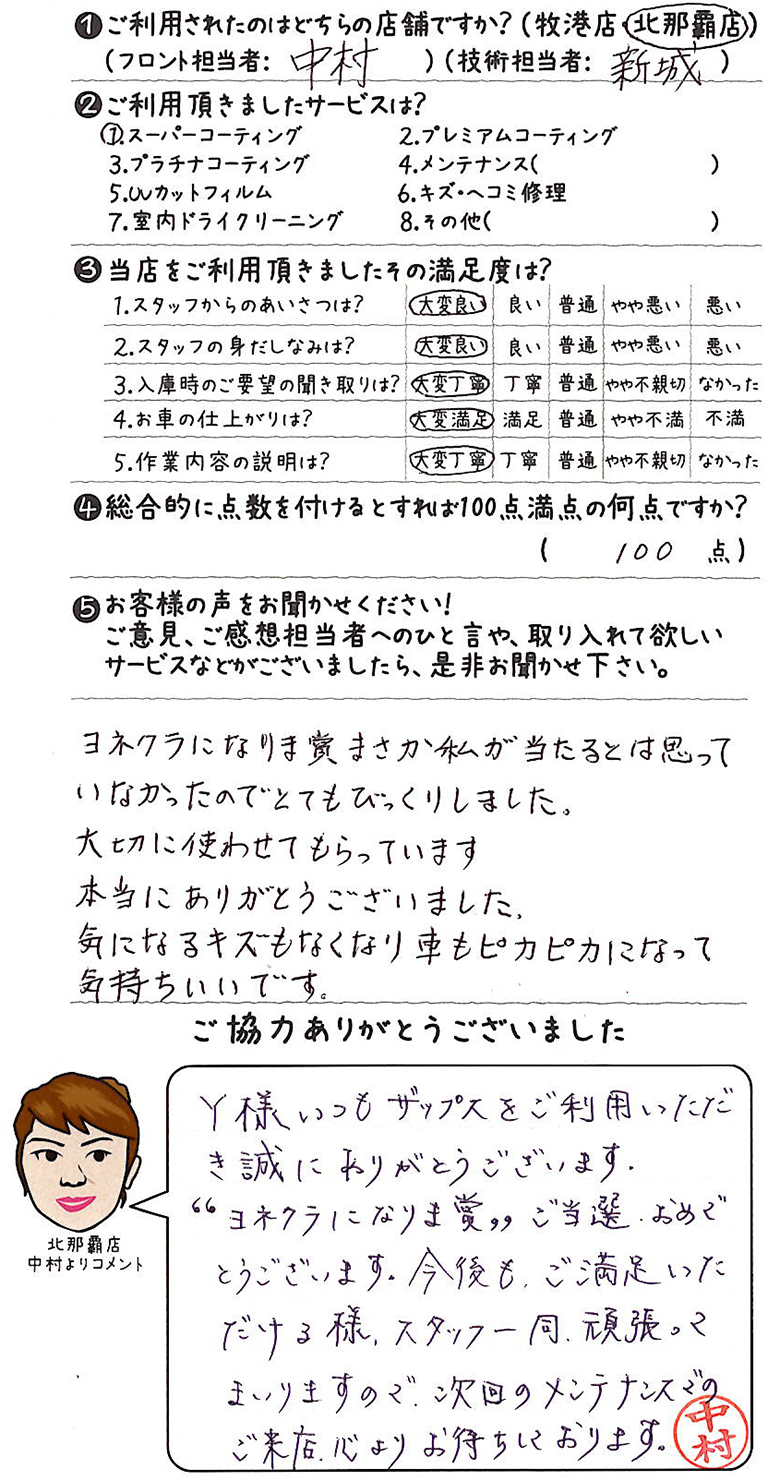 ❶ご利用されたのはどちらの店舗ですか?(牧港店・北那覇店)
(フロント担当者: 中村 )(技術担当者: 新城 )
❷ご利用頂きましたサービスは?
1.スーパーコーティング 2.プレミアムコーティング
3.プラチナコーティング 4.メンテナンス( )
5.UVカットフィルム 6.キズ・ヘコミ修理
7.室内ドライクリーニング 8.その他( )
❸当店をご利用頂きましたその満足度は?
1.スタッフからのあいさつは? 大変良い 良い 普通 やや悪い 悪い
2.スタッフの身だしなみは? 大変良い 良い 普通 やや悪い 悪い
3.入庫時のご要望の聞き取りは? 大変丁寧 丁寧 普通 やや不親切 なかった
4.お車の仕上がりは? 大変満足 満足 普通 やや不満 不満
5.作業内容の説明は? 大変丁寧 丁寧 普通 やや不親切 なかった
❹総合的に点数を付けるとすれば100点満点の何点ですか?
( 100 点)
❺お客様の声をお聞かせください!
ご意見、ご感想担当者へのひと言や、取り入れて欲しい
サービスなどがございましたら、是非お聞かせ下さい。
ヨネクラになりま賞まさか私が当たるとは思って
いなかったのでとてもびっくりしました。
大切に使わせてもらっています
本当にありがとうございました。
気になるキズもなくなり車もピカピカになって
気持ちいいです。
ご協力ありがとうございました
Y様いつもザップスをご利用いただ
き誠にありがとうございます.
“ヨネクラになりま賞”ご当選.おめで
とうございます。今後も、ご満足いた
だける様、スタッフ一同、頑張って
まいりますので、次回のメンテナンスでの
ご来店、心よりお待ちしております。
中村
北那覇店
中村よりコメント